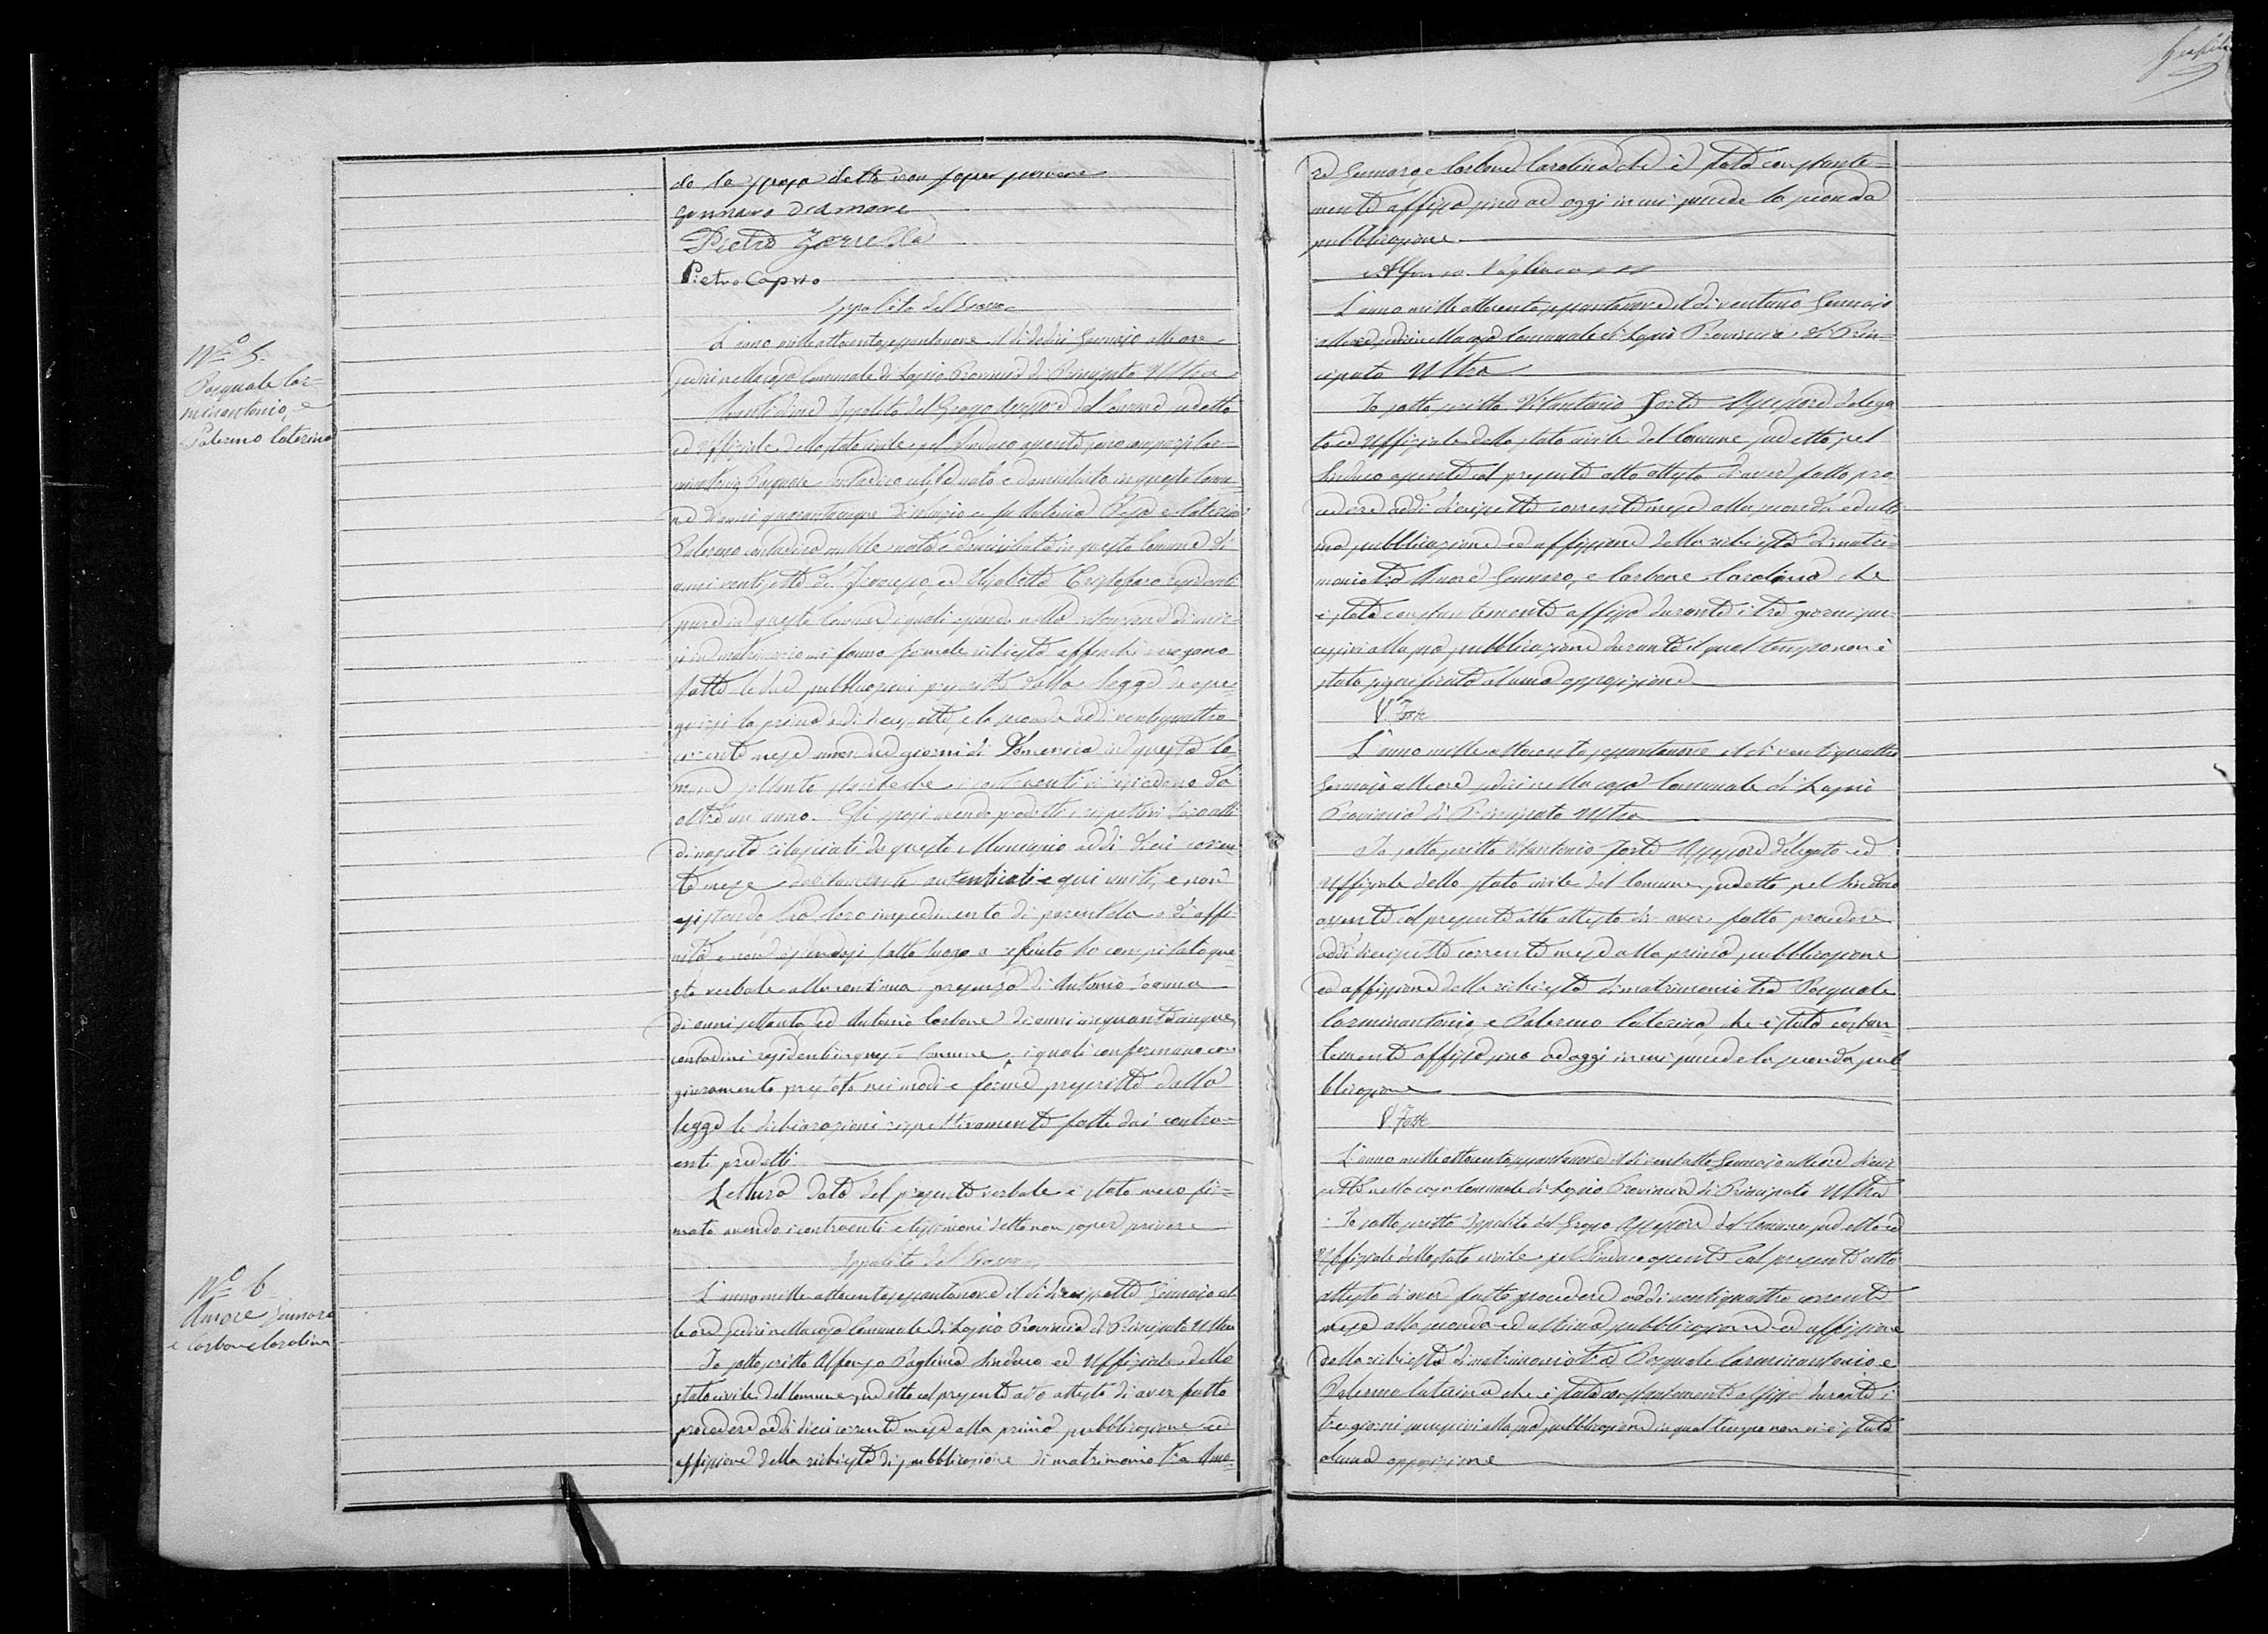 do la sposa detto non saper scrivere
Gennaro d'Amore
Pietro Zarrella
Pietro Capsso
Ippolito del Grosso
N.o 5.
Pasquale Car=
minantonio, e
Palermo Caterina
L'anno milleottocentosessantanove il dì dodici Gennajo alle ore
sedici nella casa Comunale di Lapio Provincia di Principato Ultra
Avanti di me Ippolito del Grosso Assessore del Comune sudetto
ed Uffiziale dello stato civile pel Sindaco assente sono comparsi Car=
minantonio Pasquale contadino celibe nato e domiciliato in questo Comu=
ne d'anni quarantacinque di Biagio e fu Antonia Rosa e Caterina
Palermo contadina nubile nata e domiciliata in questo Comune di
anni ventisette di Giuseppe, ed Elisabetta Cristofaro residenti
pure in questo Comune i quali essendo nella intenzione di unir=
si in matrimonio mi fanno formale richiesta affinché vengano
fatte le due pubblicazioni prescritte dalla Legge da ese=
guirsi la prima addì diecisette, e la seconda addì ventiquattro
corrente mese amendue giorni di Domenica in questo Co=
mune soltanto stanteche i contraenti vi risiedono da
oltre un anno. Gli sposi avendo prodotti i rispettivi loro atti
di nascita rilasciati da questo Municipio addì dieci corren=
te mese debitamente autenticati e qui uniti, e non
esistendo tra loro impedimento di parentela o di affi=
nità e non essendosi fatto luogo a rifiuto ho compilato que=
sto verbale alla continua presenza di Antonio Ioanna
di anni settanta ed Antonio Carbone di anni cinquantacinque,
contadini residenti in questo Comune, i quali confermano con
giuramento prestato nei modi e forme prescritte dalla
legge le dichiarazioni rispettivamente fatte dai contra=
enti predetti
Lettura data del presente verbale è stato meco fir=
mato avendo i contraenti e testimoni detto non saper scrivere
Ippolito del Grosso
N.o 6
Amore Gennaro
e Carbone Carolina
L'anno milleottocentosessantanove il dì diecisette Gennajo al
le ore sedici nella casa Comunale di Lapio Provincia di Principato Ultra
Io sottoscritto Alfonso Pagliuca Sindaco ed Uffiziale dello
stato civile del Comune sudetto col presente atto attesto di aver fatto
procedere addì dieci corrente mese alla prima pubblicazione ed
affissione della richiesta di pubblicazione di matrimonio tra Amo=
re Gennaro, e Carbone Carolina che è stata constante=
mente affissa sino ad oggi in cui succede la seconda
pubblicazione.
Alfonso Pagliuca
L'anno milleottocentosessantanove il dì ventuno Gennajo
alle ore sedici nella casa Comunale di Lapio Provincia di Prin=
cipato Ultra
Io sottoscritto Vitantonio Forte Assessore delega
to ed Uffiziale dello stato civile del Comune sudetto pel
Sindaco assente col presente atto attesto d'aver fatto pro
cedere addì diecisette corrente mese alla seconda ed ulti
ma pubblicazione ed affissione della richiesta di matri=
monio tra Amore Gennaro, e Carbone Carolina che
è stata constantemente affissa durante i tre giorni suc=
cessivi alla sua pubblicazione durante il qual tempo non è
stata significata alcuna opposizione
V. Forte
L'anno milleottocentosessantanove il dì ventiquattro
Gennajo alle ore sedici nella casa Comunale di Lapio
Provincia di Principato Ultra
Io sottoscritto Vitantonio Forte Assessore delegato ed
Uffiziale dello stato civile del Comune sudetto pel Sindaco
assente col presente atto attesto di aver fatto procedere
addì diecisette corrente mese alla prima pubblicazione
ed affissione della richiesta di matrimonio tra Pasquale
Carminantonio e Palermo Caterina, che è stata costan=
temente affissa sino ad oggi in cui succede la seconda pub
blicazione
V. Forte
L'anno milleottocentosessantanove il dì ventotto Gennajo alle ore dieci
sette nella casa Comunale di Lapio Provincia di Principato Ultra
Io sottoscritto Ippolito del Grosso Assessore del Comune sudetto ed
Uffiziale dello stato civile pel Sindaco assente col presente atto
attesto di aver fatto procedere addì ventiquattro corrente
mese alla seconda ed ultima pubblicazione ed affissione
della richiesta di matrimonio tra Pasquale Carminantonio e
Palermo Caterina che è stata constantemente affissa durante i
tre giorni successivi alla sua pubblicazione in qual tempo non vi è stata
alcuna opposizione